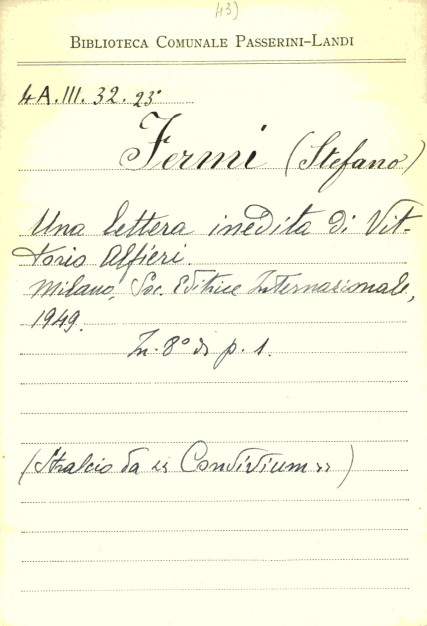 43)
BIBLIOTECA COMUNALE PASSERINI-LANDI
4A.III.32.23
Fermi (Stefano)
Una lettera inedita di Vit-
torio Alfieri.
Milano, Soc. Editrice Internazionale,
1949.
In. 8° di p. 1.
(Stralcio da "Convivium")